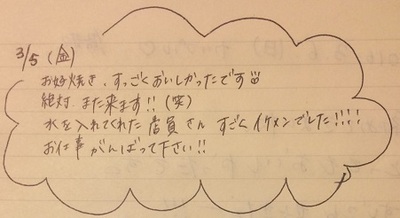 3/5 (金)
お好焼き、すっごくおいしかったです
絶対、また来ます!! (笑)
水を入れてくれた店員さん すごくイケメンでした!!!!
お仕事がんばって下さい!!